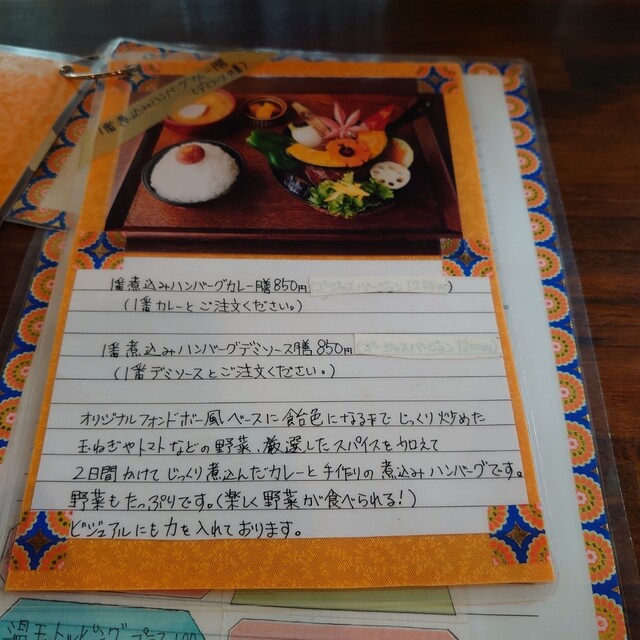 1番煮込みハンバーグカレー膳
1番煮込みハンバーグカレー膳850円(ゴージャスバージョン1200円)
(1番カレーとご注文ください。)
1番煮込みハンバーグデミソース膳850円(ゴージャスバージョン1200円)
(1番デミソースとご注文ください。)
オリジナルフォンドボー風ベースに飴色になるまでじっくり炒めた
玉ねぎやトマトなどの野菜、厳選したスパイスを加えて
2日間かけてじっくり煮込んだカレーと手作りの煮込みハンバーグです。
野菜もたっぷりです。(楽しく野菜が食べられる!)
ビジュアルにも力を入れております。
温玉トッピング プラス100